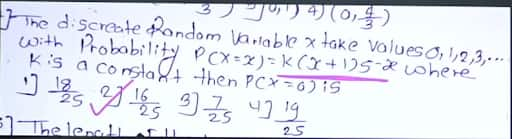 3) 4) (0, 4/3)
7] The discreate Random Variable x take values 0, 1, 2, 3, ...
with Probability P(X=x) = K(x+1)5^-x where
K is a constant then P(X=0) is
1) 18/25 2) 16/25 3) 7/25 4) 19/25
The lengt